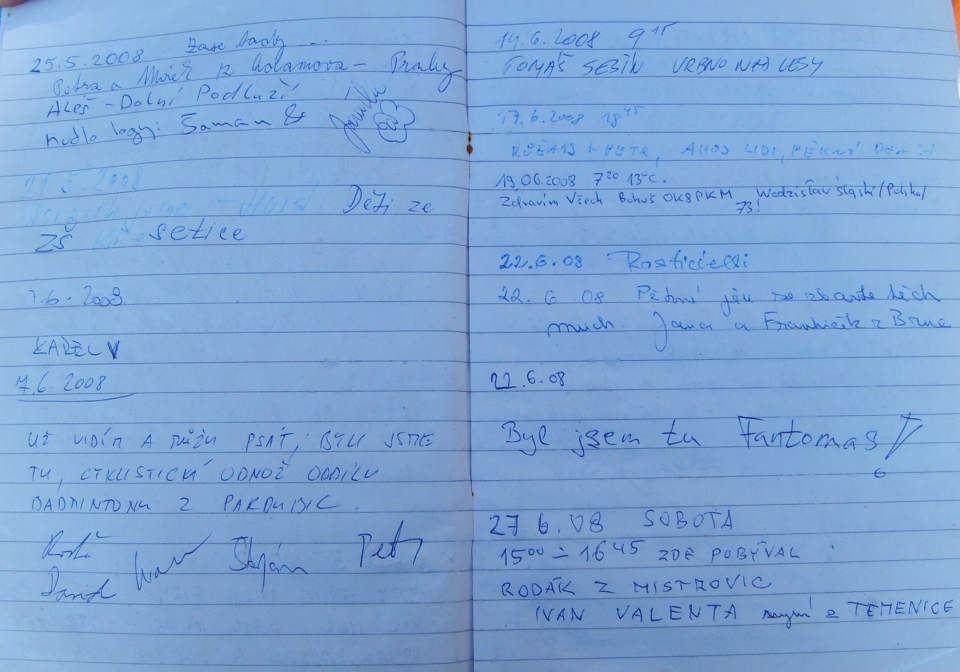 25.5.2008 Zase tady ...
Petra a Mirek z Adamova - Prahy
Aleš - Dolní Podluží
nudlo logy: Šaman &
5.2008
Děti ze
ZŠ setice
7.6.2008
KAREL V
7.6.2008
UŽ VIDÍM A MŮŽU PSÁT, BYLI JSME
TU, CYKLISTICKÁ ODNOŽ ODDÍLU
BADMINTONU Z PARDUBIC.
David Ivan Štěpán Petr
14.6.2008 9 15
TOMÁŠ SEBÍN VRBNO NAD LESY
17.6.2008 18 45
+ PETR, AHOJ LIDI, PĚKNÝ DEN :-)
19.06.2008 7 20 13°C.
Zdravím Všech Bohuš OK8PKM Wodzisław Śląski /Polsko/
73!
22.6.08
22. 6 08 Pěkně jen se zbavte těch
much. Jana a František z Brna
22.6.08
Byl jsem tu Fantomas!
27 6. 08 SOBOTA
15 00 - 16 45 ZDE POBÝVAL
RODÁK Z MISTROVIC
IVAN VALENTA nyní z TEMENICE